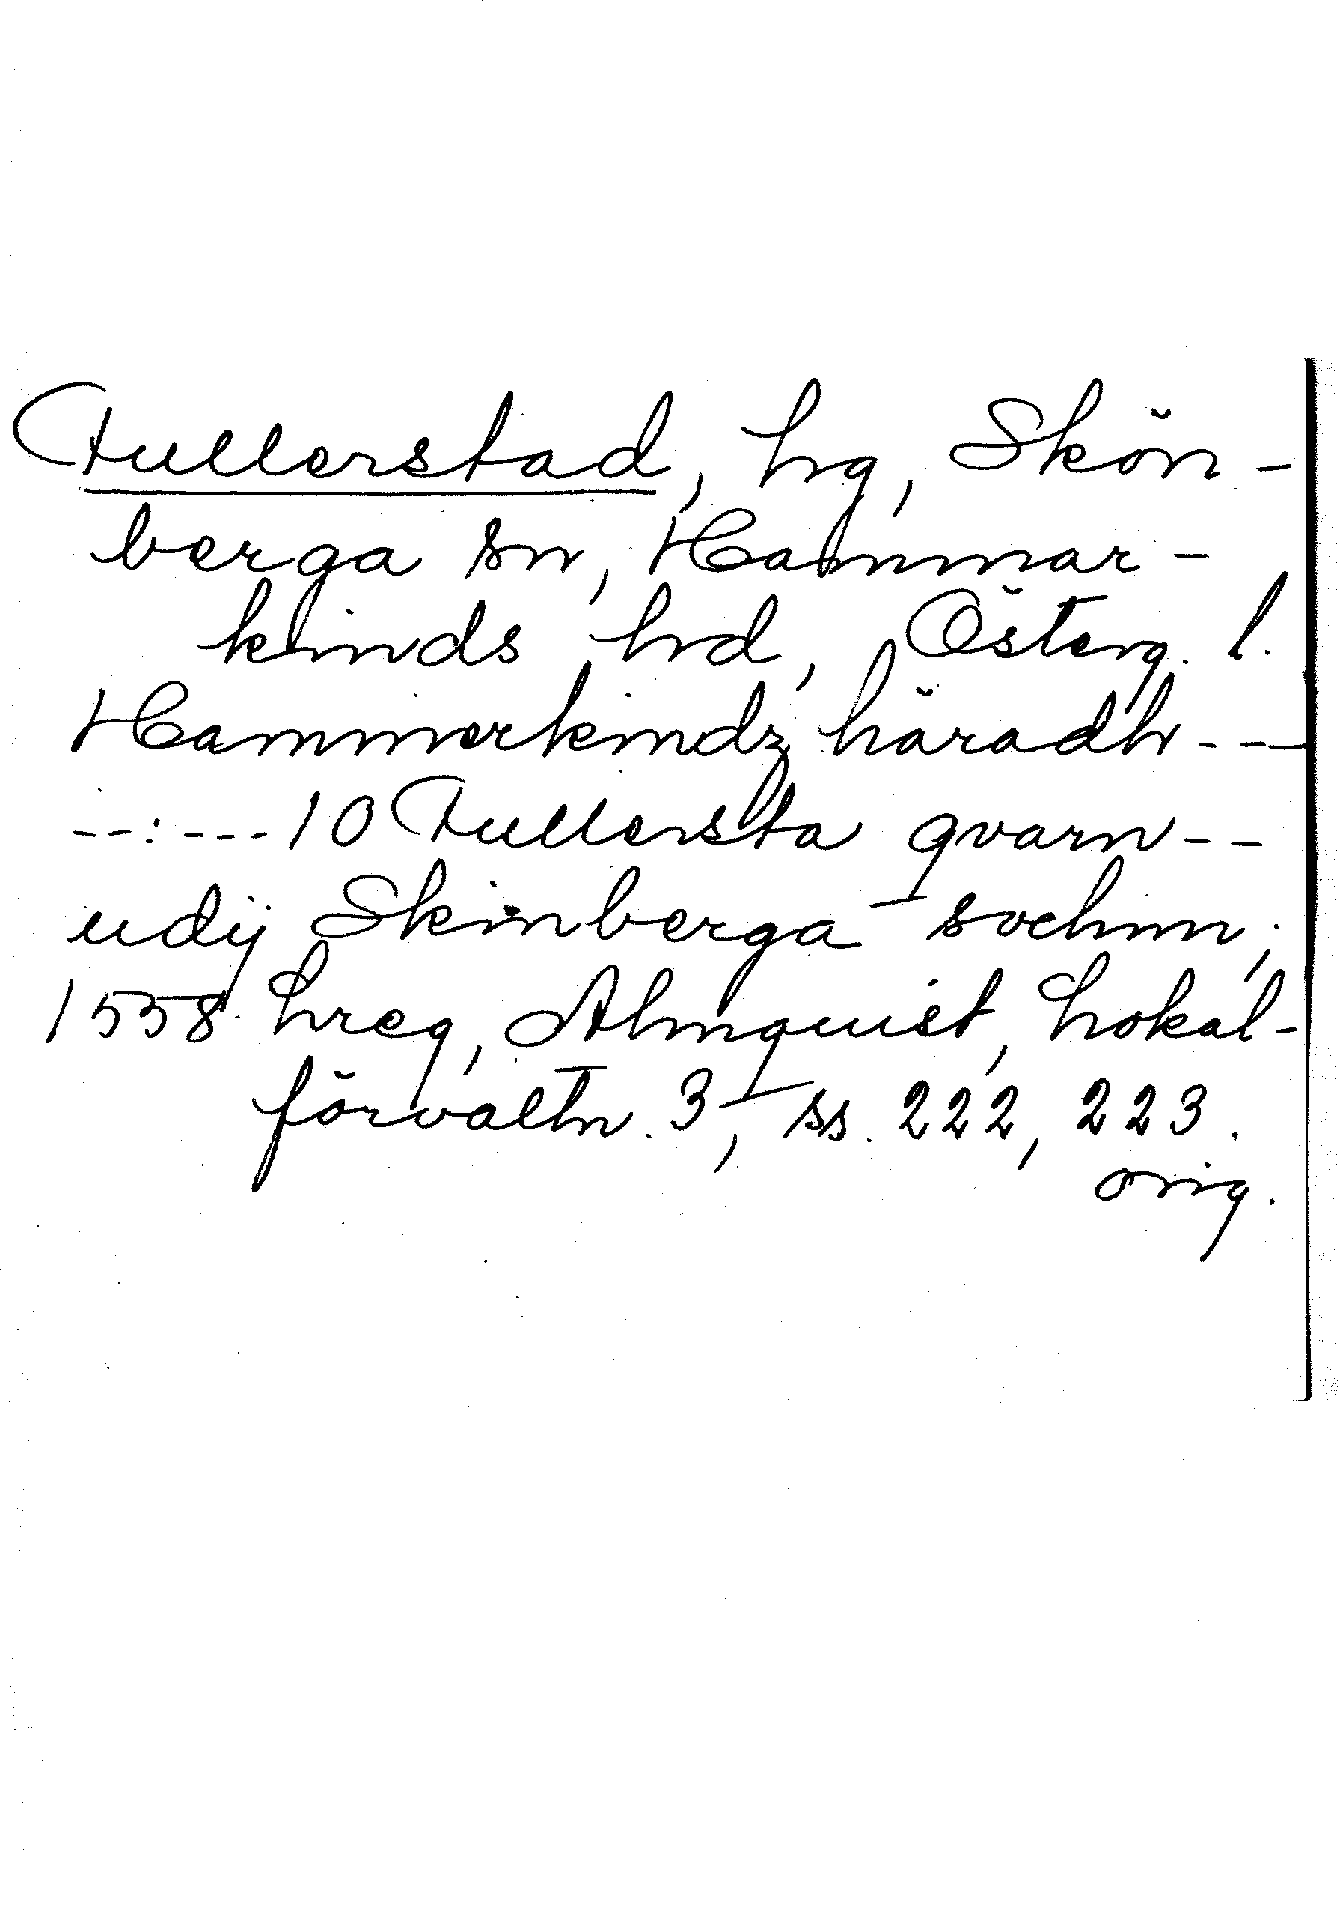 Fullerstad, hg, Skön-
berga sn, Hammar-
kinds hd, Österg. l.
Hammerkindz häradh ---
--:--- 10 Fullersta qvarn --
udij Skinberga sochnn,
1558 hreg, Almquist, Lokal-
förvaltn. 3, ss. 222, 223.
orig.